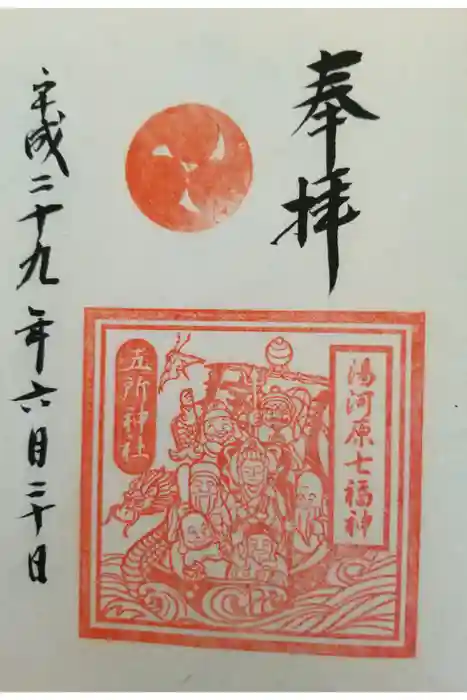 奉拝
湯河原七福神
五所神社
平成二十九年六月二十日